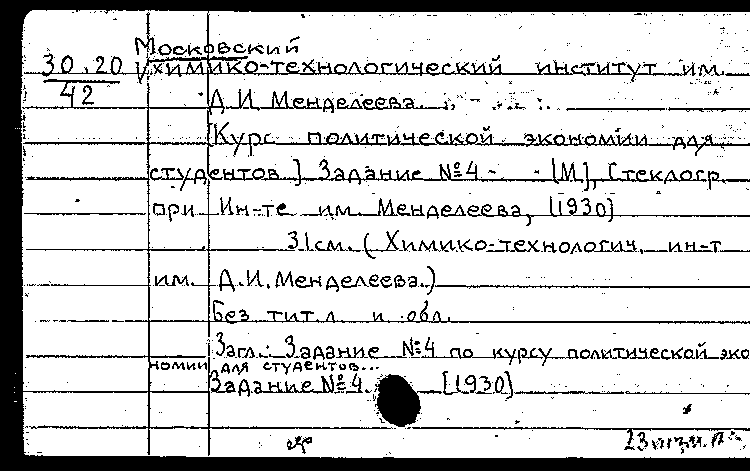 Московский
30.20 химико-технологический институт им.
42 Д.И. Менделеева.
[Курс политической экономии для
студентов] Задание №4 - - [М], Стеклогр.
при Ин-те им. Менделеева, [1930]
31см. (Химико-технологич. ин-т
им. Д.И. Менделеева.)
Без тит.л. и обл.
Загл.: Задание №4 по курсу политической эко
номии для студентов...
Задание №4. [1930]